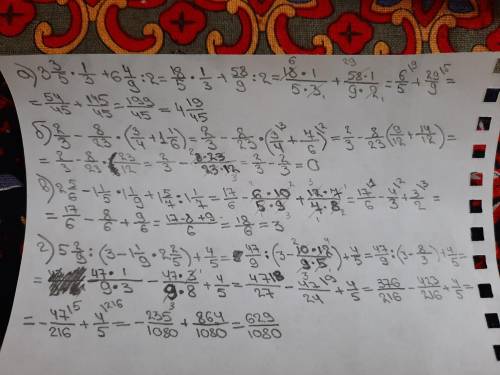 а) 3 3/5 · 1/3 + 6 4/9 : 2 = 18/5 · 1/3 + 58/9 : 2 = 18·1/5·3 + 58·1/9·2 = 6/5 + 29/9 =
= 54/45 + 145/45 = 199/45 = 4 19/45
б) 2/3 - 8/23 · (3/4 + 1 1/6) = 2/3 - 8/23 · (3/4 + 7/6) = 2/3 - 8/23 (9/12 + 14/12) =
= 2/3 - 8/23 · 23/12 = 2/3 - 8·23/23·12 = 2/3 - 2/3 = 0
= 17/6 - 8/6 + 9/6 = 17-8+9/6 = 18/6 = 3
г) 5 2/9 : (3 - 1 1/9 · 2 2/5) + 4/5 = 47/9 : (3 - 10·12/9·5) + 4/5 = 47/9 : (3 - 8/3) + 4/5 =
= 47·1/9·3 - 47·3/9·8 + 4/5 = 47/27 - 47/24 + 4/5 = 376/216 - 423/216 + 4/5 =
= - 47/216 + 4/5 = - 235/1080 + 864/1080 = 629/1080